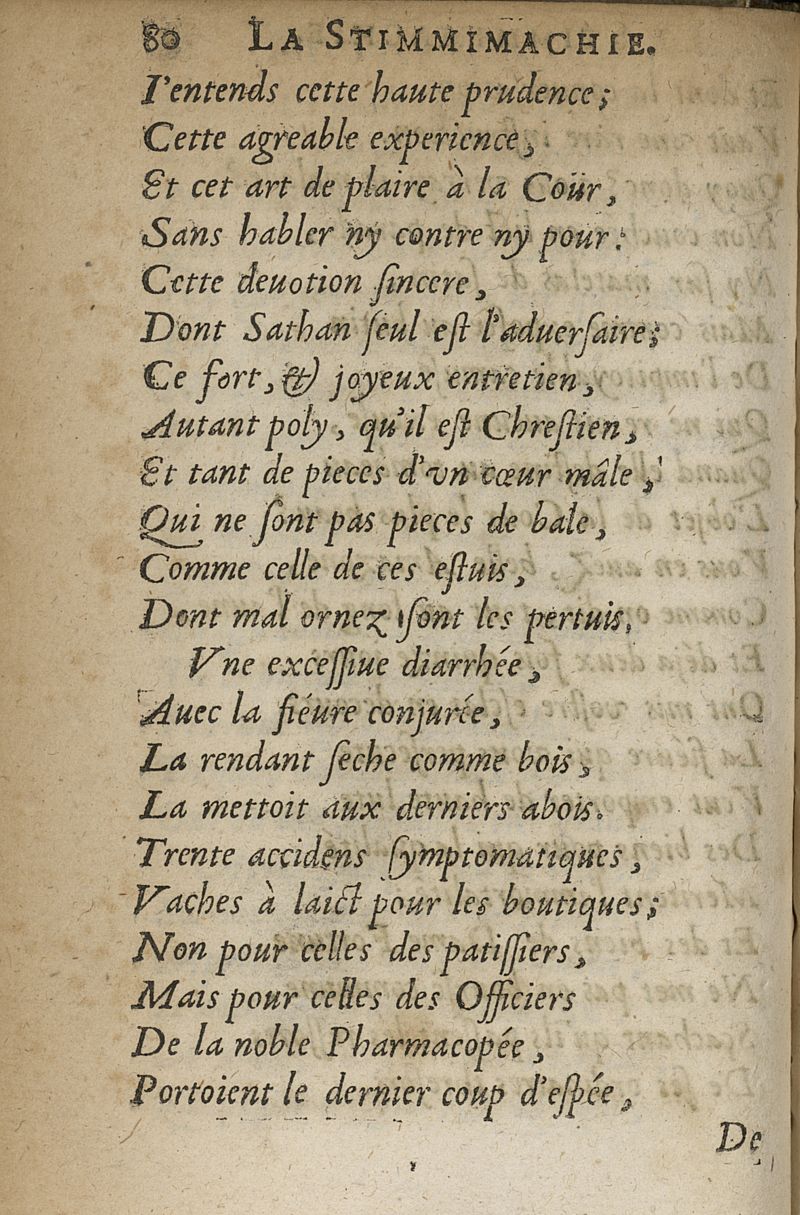 80 LA STIMMIMACHIE.
I'entends cette haute prudence;
Cette agreable experience,
Et cet art de plaire à la Coür,
Sans habler ny contre ny pour:
Cette deuotion ſincere,
Dont Sathan ſeul eſt l'aduerſaire;
Ce fort, & joyeux entretien,
Autant poly, qu'il eſt Chreſtien,
Et tant de pieces d'vn cœur mâle,
Qui ne ſont pas pieces de bale,
Comme celle de ces eſtuis,
Dont mal ornez ſont les pertuis.
Vne exceſſiue diarrhée,
Auec la fiéure conjurée,
La rendant ſeche comme bois,
La mettoit aux derniers abois.
Trente accidens ſymptomatiques,
Vaches à laict pour les boutiques;
Non pour celles des patiſſiers,
Mais pour celles des Officiers
De la noble Pharmacopée,
Portoient le dernier coup d'eſpée,
De